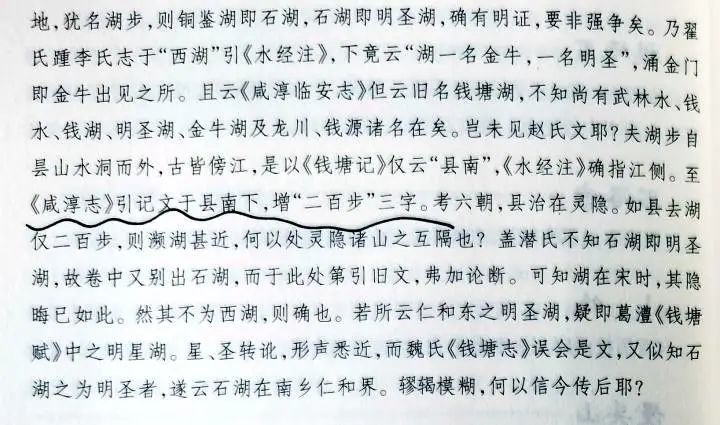 地，犹名湖步，则铜鉴湖即石湖，石湖即明圣湖，确有明证，要非强争矣。乃翟
氏踵李氏志于“西湖”引《水经注》，下竟云“湖一名金牛，一名明圣”，涌金门
即金牛出见之所。且云《咸淳临安志》但云旧名钱塘湖，不知尚有武林水、钱
水、钱湖、明圣湖、金牛湖及龙川、钱源诸名在矣。岂未见赵氏文耶？夫湖步自
昙山水洞而外，古皆傍江，是以《钱塘记》仅云“县南”，《水经注》确指江侧。至
《咸淳志》引记文于县南下，增“二百步”三字。考六朝，县治在灵隐。如县去湖
仅二百步，则濒湖甚近，何以处灵隐诸山之互隔也？盖潜氏不知石湖即明圣
湖，故卷中又别出石湖，而于此处第引旧文，弗加论断。可知湖在宋时，其隐
晦已如此。然其不为西湖，则确也。若所云仁和东之明圣湖，疑即葛澧《钱塘
赋》中之明星湖。星、圣转讹，形声悉近，而魏氏《钱塘志》误会是文，又似知石
湖之为明圣者，遂云石湖在南乡仁和界。轇轕模糊，何以信今传后耶？